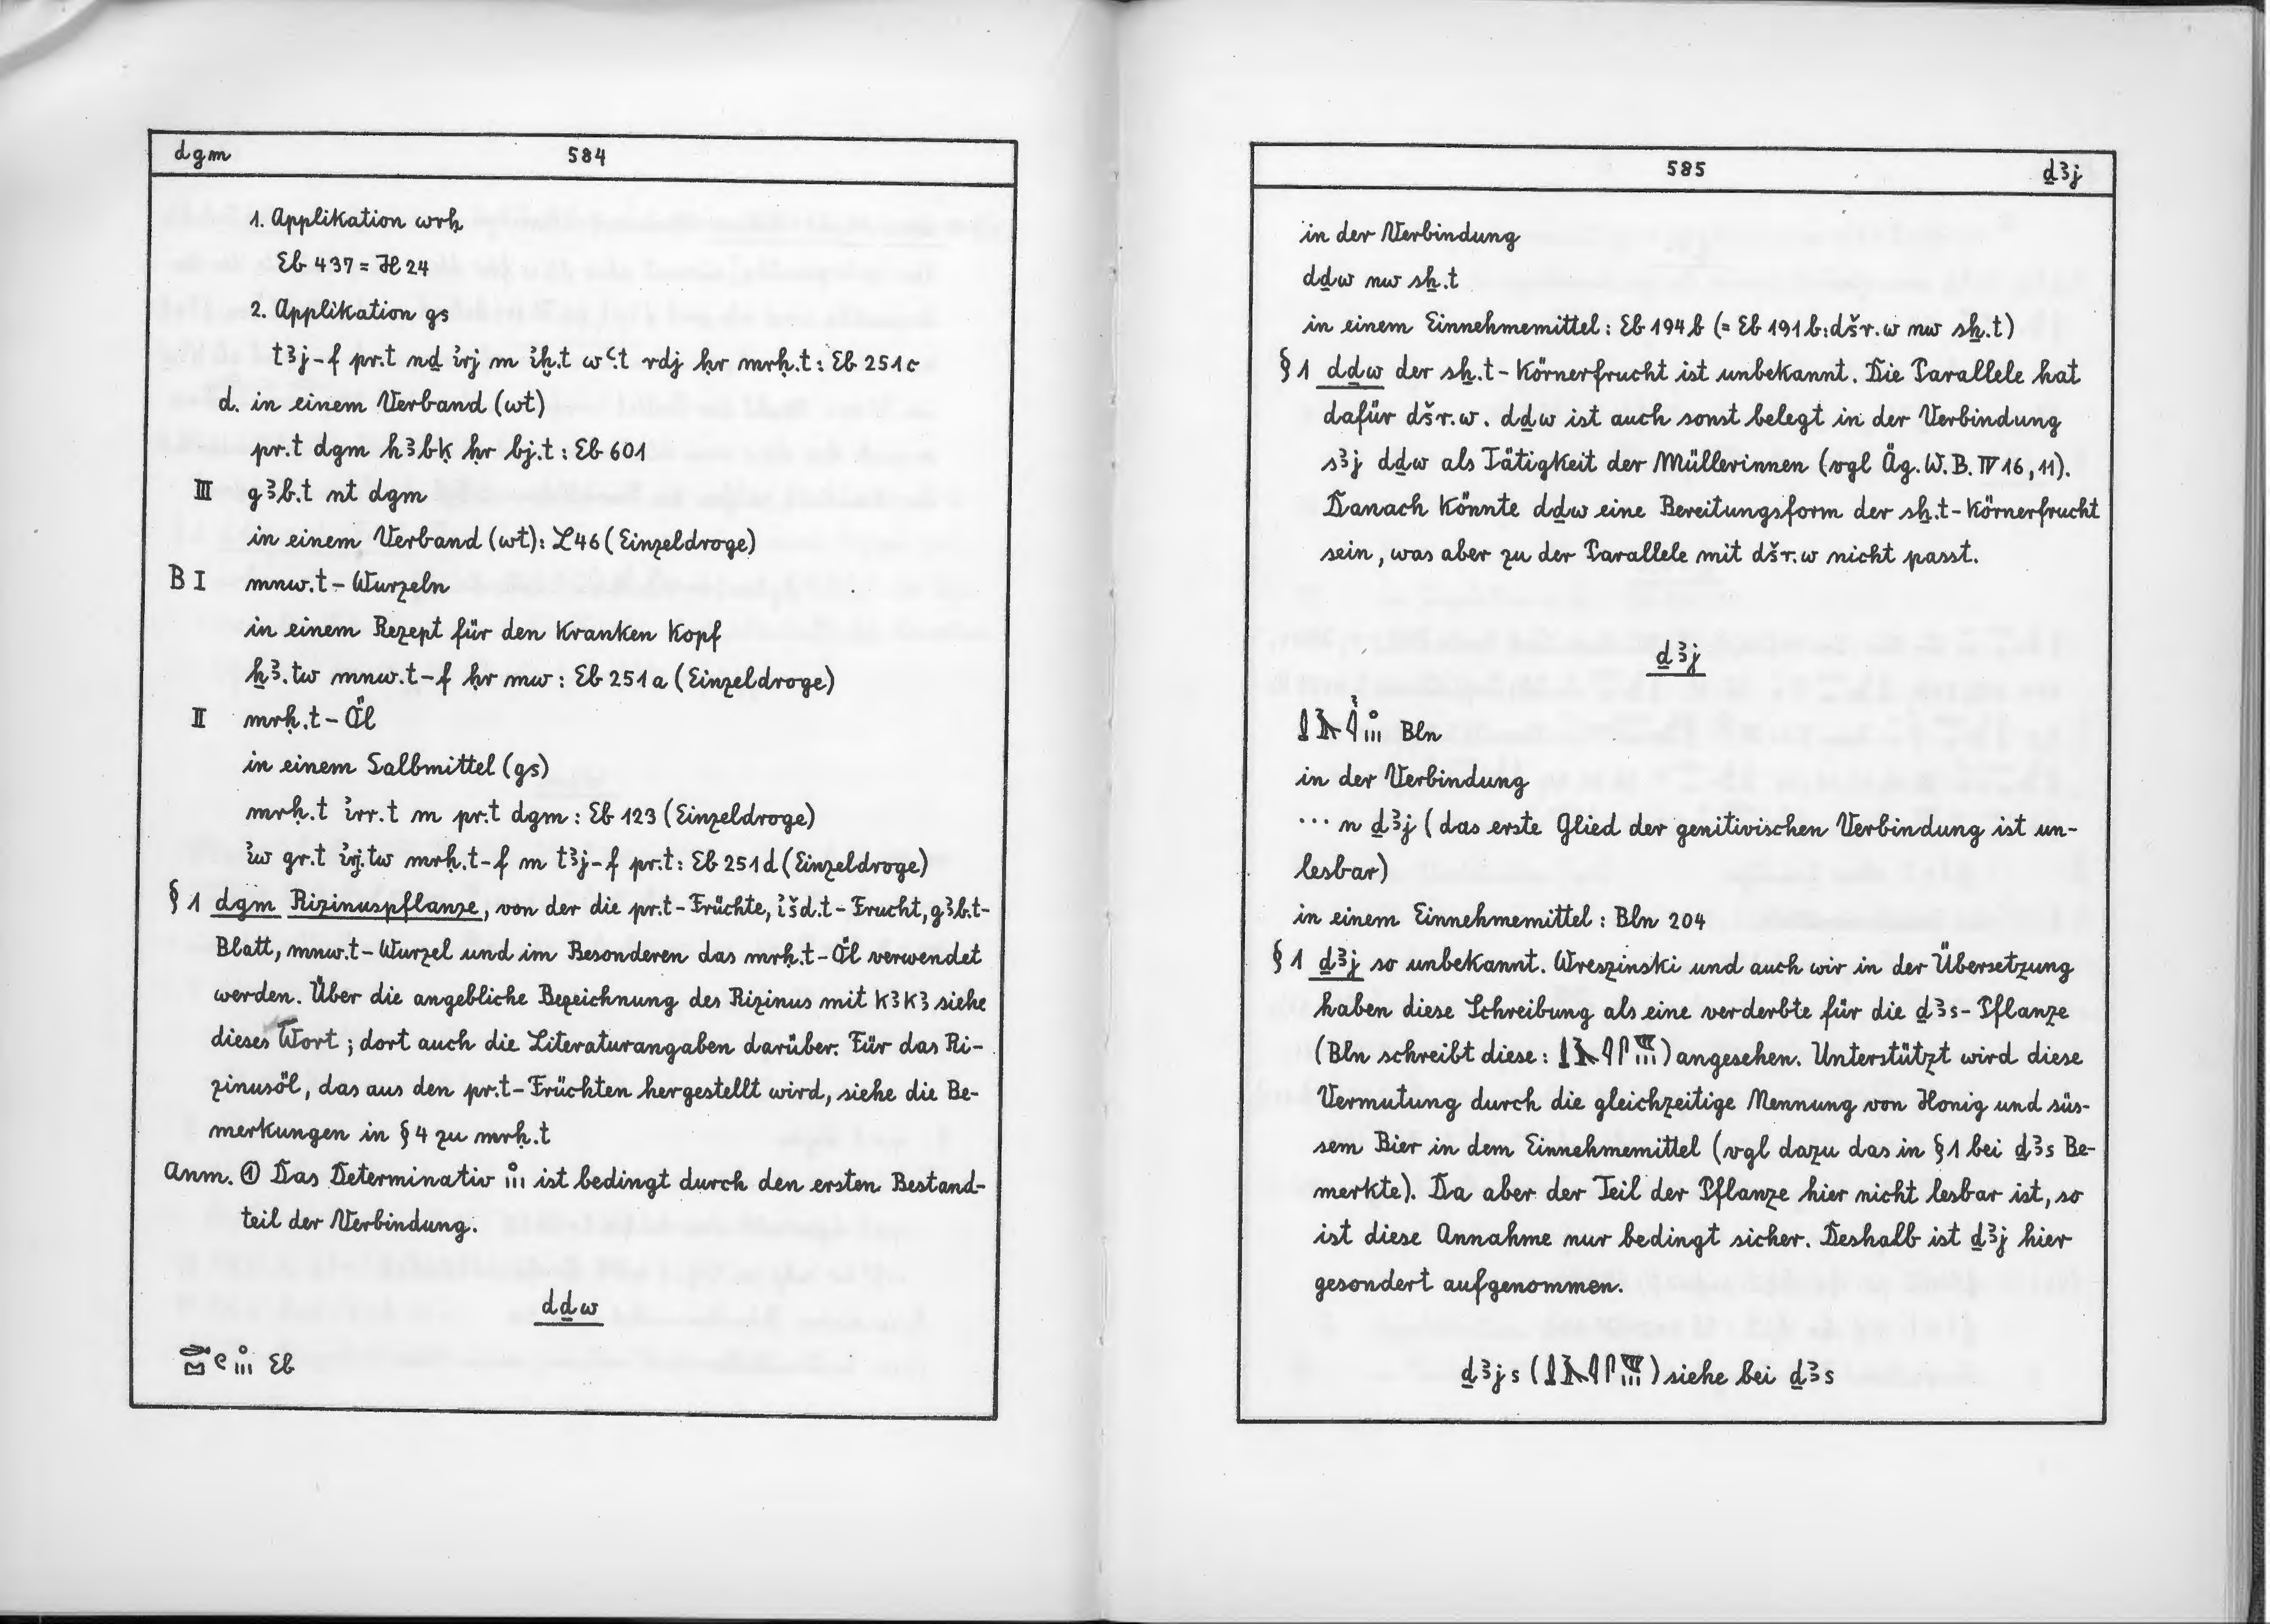 dgm
584
1. Applikation wrḥ
Eb 437 = H 24
2. Applikation gs
tꜣj-f pr.t nḏ ı͗rj m ı͗ḫ.t wꜥ.t rdj ḥr mrḥ.t : Eb 251c
d. in einem Verband (wt)
pr.t dgm hꜣbḳ ḥr bj.t : Eb 601
III gꜣb.t nt dgm
in einem Verband (wt): L 46 (Einzeldroge)
B I mnw.t - Wurzeln
in einem Rezept für den Kranken Kopf
ẖꜣ.tw mnw.t-f ḥr mw : Eb 251a (Einzeldroge)
II mrḥ.t - Öl
in einem Salbmittel (gs)
mrḥ.t ı͗rr.t m pr.t dgm : Eb 123 (Einzeldroge)
ı͗w gr.t ı͗rj.tw mrḥ.t-f m tꜣj-f pr.t : Eb 251d (Einzeldroge)
§ 1 dgm Rizinuspflanze, von der die pr.t - Früchte, ı͗šd.t - Frucht, gꜣb.t-
Blatt, mnw.t - Wurzel und im Besonderen das mrḥ.t - Öl verwendet
werden. Über die angebliche Bezeichnung des Rizinus mit kꜣkꜣ siehe
dieses Wort ; dort auch die Literaturangaben darüber. Für das Ri-
zinusöl, das aus den pr.t - Früchten hergestellt wird, siehe die Be-
merkungen in § 4 zu mrḥ.t
Anm. ① Das Determinativ ist bedingt durch den ersten Bestand-
teil der Verbindung.
dḏw
Eb
585
ḏꜣj
in der Verbindung
dḏw nw sẖ.t
in einem Einnehmemittel : Eb 194b (= Eb 191b : dšr.w nw sẖ.t)
§ 1 dḏw der sẖ.t - Körnerfrucht ist unbekannt. Die Parallele hat
dafür dšr.w. dḏw ist auch sonst belegt in der Verbindung
sꜣj dḏw als Tätigkeit der Müllerinnen (vgl Äg. W.B. IV 16, 11).
Danach könnte dḏw eine Bereitungsform der sẖ.t - Körnerfrucht
sein, was aber zu der Parallele mit dšr.w nicht passt.
ḏꜣj
Bln
in der Verbindung
... n ḏꜣj (das erste Glied der genitivischen Verbindung ist un-
lesbar)
in einem Einnehmemittel : Bln 204
§ 1 ḏꜣj so unbekannt. Wreszinski und auch wir in der Übersetzung
haben diese Schreibung als eine verderbte für die ḏꜣs - Pflanze
(Bln schreibt diese : ) angesehen. Unterstützt wird diese
Vermutung durch die gleichzeitige Nennung von Honig und süs-
sem Bier in dem Einnehmemittel (vgl dazu das in § 1 bei ḏꜣs Be-
merkte). Da aber der Teil der Pflanze hier nicht lesbar ist, so
ist diese Annahme nur bedingt sicher. Deshalb ist ḏꜣj hier
gesondert aufgenommen.
ḏꜣjs ( ) siehe bei ḏꜣs